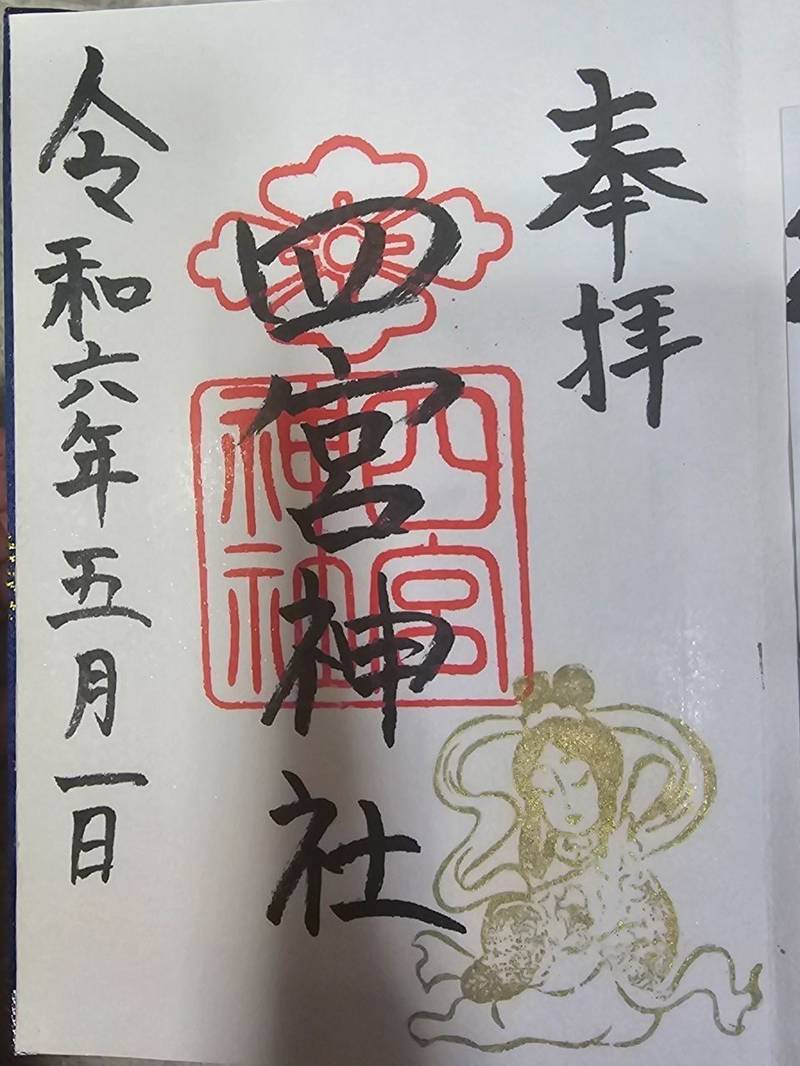 奉拝
四宮神社
四宮神社
令和六年五月一日